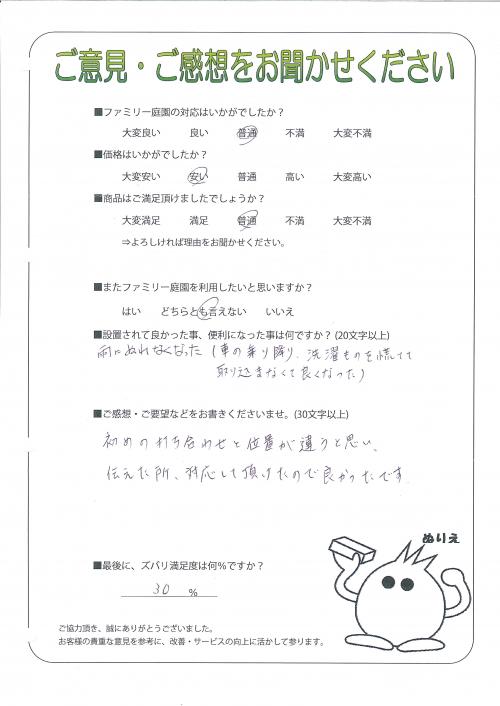 ご意見・ご感想をお聞かせください
■ファミリー庭園の対応はいかがでしたか？
大変良い 良い 普通 不満 大変不満
■価格はいかがでしたか？
大変安い 安い 普通 高い 大変高い
■商品はご満足頂けましたでしょうか？
大変満足 満足 普通 不満 大変不満
⇒よろしければ理由をお聞かせください。
■またファミリー庭園を利用したいと思いますか？
はい どちらとも言えない いいえ
■設置されて良かった事、便利になった事は何ですか？(20文字以上)
雨にぬれなくなった（車の乗り降り、洗濯ものを慌てて
取り込まなくて良くなった）
■ご感想・ご要望などをお書きくださいませ。(30文字以上)
初めの打ち合わせと位置が違うと思い、
伝えた所、対応して頂けたので良かったです
■最後に、ズバリ満足度は何％ですか？
30 ％
ぬりえ
ご協力頂き、誠にありがとうございました。
お客様の貴重な意見を参考に、改善・サービスの向上に活かして参ります。